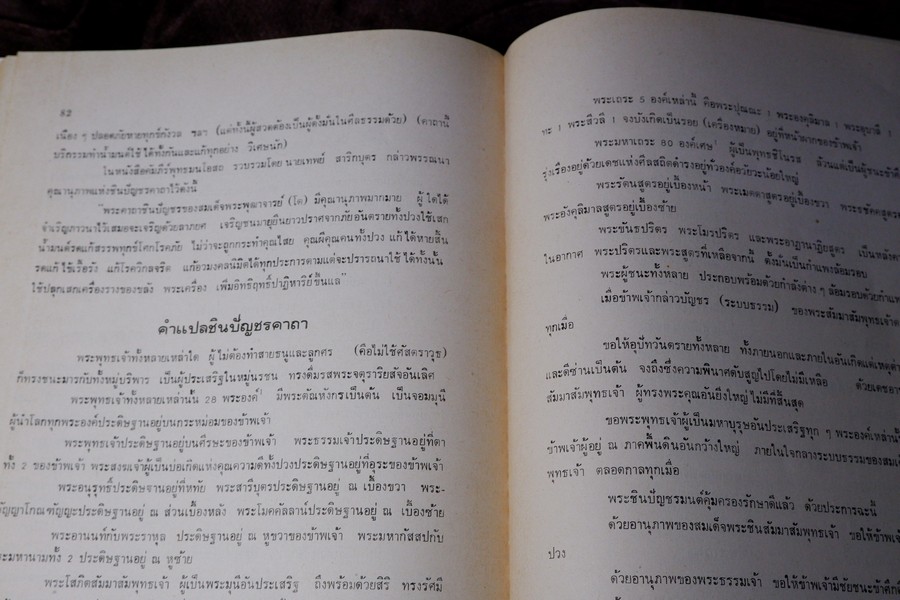 62
เนือง ๆ ปลอดภัยหายทุกข์กังวล ฯลฯ (แต่ทั้งนี้ผู้สวดต้องเป็นผู้ตั้งมั่นในศีลธรรมด้วย) (คาถานี้
บริกรรมทำน้ำมนต์ใช้ได้ทั้งกันและแก้ทุกอย่าง วิเศษนัก)
ในหนังสือคัมภีร์พุทธมนโอสถ รวบรวมโดย นายเทพย์ สาริกบุตร กล่าวพรรณนา
คุณานุภาพแห่งชินบัญชรคาถาไว้ดังนี้
"พระคาถาชินบัญชรของสมเด็จพระพุฒาจารย์ (โต) มีคุณานุภาพมากมาย ผู้ใดได้
จำเริญภาวนาไว้เสมอจะเจริญด้วยลาภยศ เจริญชนมายุยืนยาวปราศจากภัยอันตรายทั้งปวงใช้เสก
น้ำมันต์รดแก้สรรพทุกข์โศกโรคภัย ไม่ว่าจะถูกกระทำคุณไสย คุณผีคุณคนทั้งปวง แก้ได้หายสิ้น
รดแก้ใช้เรื้อรัง แก้โรควิกลจริต แก้อวมงคลนิมิตได้ทุกประการตามแต่จะปรารถนาใช้ได้ทั้งนั้น
ใช้ปลุกเสกเครื่องรางของขลัง พระเครื่อง เพิ่มอิทธิฤทธิ์ปาฏิหารย์ขึ้นแล"
คำแปลชินบัญชรคาถา
พระพุทธเจ้าทั้งหลายเหล่าใด ผู้ไม่ต้องทำสายธนูและลูกศร (คือไม่ใช้ศัสตราวุธ)
ก็ทรงชนะมารกับทั้งหมู่บริพาร เป็นผู้ประเสริฐในหมู่นรชน ทรงดื่มรสพระจตุราริยสัจอันเลิศ
พระพุทธเจ้าทั้งหลายเหล่านั้น 28 พระองค์ มีพระตัณหังกรเป็นต้น เป็นจอมมุนี
ผู้นำโลกทุกพระองค์ประดิษฐานอยู่บนกระหม่อมของข้าพเจ้า
พระพุทธเจ้าประดิษฐานอยู่บนศีรษะของข้าพเจ้า พระธรรมเจ้าประดิษฐานอยู่ที่ตา
ทั้ง 2 ของข้าพเจ้า พระสงฆเจ้าผู้เป็นบ่อเกิดแห่งคุณความดีทั้งปวงประดิษฐานอยู่ที่อุระของข้าพเจ้า
พระอนุรุทธิ์ประดิษฐานอยู่ที่หทัย พระสารีบุตรประดิษฐานอยู่ ณ เบื้องขวา พระ-
ัญญาโกณฑัญญะประดิษฐานอยู่ ณ ส่วนเบื้องหลัง พระโมคคัลลาน์ประดิษฐานอยู่ ณ เบื้องซ้าย
พระอานนท์กับพระราหุล ประดิษฐานอยู่ ณ หูขวาของข้าพเจ้า พระมหากัสสปกับ
ระมหานามทั้ง 2 ประดิษฐานอยู่ ณ หูซ้าย
พระโสภิตสัมมาสัมพุทธเจ้า ผู้เป็นพระมุนีอันประเสริฐ ถึงพร้อมด้วยสิริ ทรงรัศมี
พระเถระ 5 องค์เหล่านี้ คือพระปุณณะ 1 พระองคุลิมาล 1 พระอุบาลี 1
ทะ 1 พระสีวลี 1 จงบังเกิดเป็นรอย (เครื่องหมาย) อยู่ที่หน้าผากของข้าพเจ้า
พระมหาเถระ 80 องค์เศษ ผู้เป็นพุทธชิโนรส ล้วนแต่เป็นผู้ชนะข้าศึ
รุ่งเรืองอยู่ด้วยเดชแห่งศีลสถิตดำรงอยู่ทั่วองค์อวยวะน้อยใหญ่
พระรัตนสูตรอยู่เบื้องหน้า พระเมตตาสูตรอยู่เบื้องขวา พระธชัคคสูตร
พระอังคุลิมาลสูตรอยู่เบื้องซ้าย
พระขันธปริตร พระโมรปริตร และพระอาฏานาฏิยสูตร เป็นหลังค
ในอากาศ พระปริตรและพระสูตรที่เหลือจากนี้ ตั้งมั่นเป็นกำแพงล้อมรอบ
พระผู้ชนะทั้งหลาย ประกอบพร้อมด้วยกำลังต่าง ๆ ล้อมรอบด้วยกำแพ
เมื่อข้าพเจ้ากล่าวบัญชร (ระบบธรรม) ของพระสัมมาสัมพุทธเจ้า
ทุกเมื่อ
ขอให้อุปัทวันตรายทั้งหลาย ทั้งภายนอกและภายในอันเกิดแต่เหตุต่า
และดีซ่านเป็นต้น จงถึงซึ่งความพินาศดับสูญไปโดยไม่มีเหลือ ด้วยเดชอา
สัมมาสัมพุทธเจ้า ผู้ทรงพระคุณอันยิ่งใหญ่ไม่มีที่สิ้นสุด
ขอพระพุทธเจ้าผู้เป็นมหาบุรุษอันประเสริฐทุก ๆ พระองค์เหล่านั้
ข้าพเจ้าผู้อยู่ ณ ภาคพื้นดินอันกว้างใหญ่ ภายในใจกลางระบบธรรมของสมเด็
พุทธเจ้า ตลอดกาลทุกเมื่อ
พระชินบัญชรมนต์คุ้มครองรักษาดีแล้ว ด้วยประการฉะนี้
ด้วยอานุภาพของสมเด็จพระชินสัมมาสัมพุทธเจ้า ขอให้ข้าพเจ้
ปวง
ด้วยอานุภาพของพระธรรมเจ้า ขอให้ข้าพเจ้ามีชัยชนะข้าศึกศั